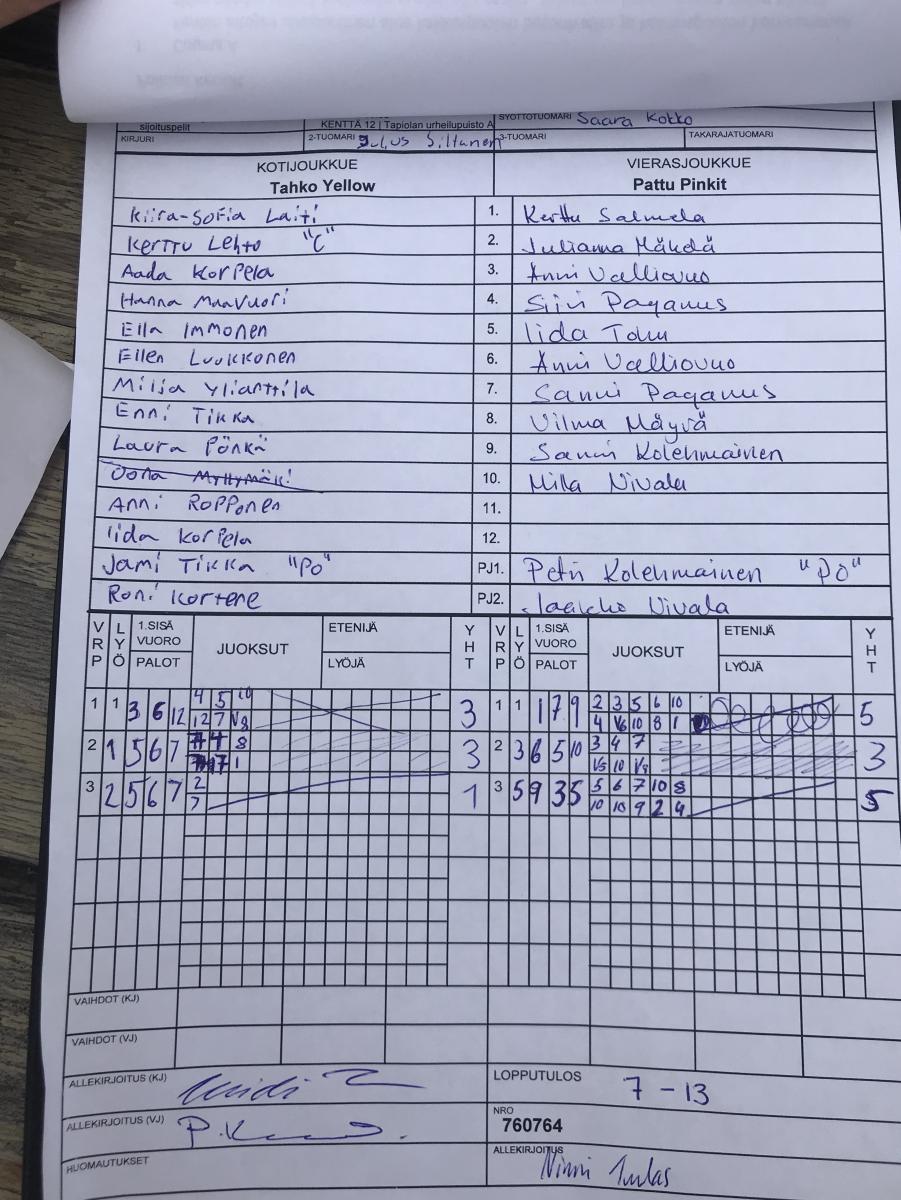 sijoituspelit KENTTÄ 12 | Tapiolan urheilupuisto A SYÖTTÖTUOMARI Saara Kokko
KIRJURI 2-TUOMARI Julius Siltanen 3-TUOMARI TAKARAJATUOMARI
KOTIJOUKKUE VIERASJOUKKUE
Tahko Yellow Pattu Pinkit
Kiira-Sofia Laiti 1. Kerttu Salmela
Kerttu Lehto "C" 2. Julianna
Aada Korpela 3. Anni Valliovuo
Hanna Maavuori 4. Siiri Paganus
Ella Immonen 5. Iida
Ellen Luukkonen 6. Anni Valliovuo
Milja Ylianttila 7. Sanni Paganus
Enni Tikka 8. Vilma Mäyrä
Laura Pönkä 9. Sanni Kolehmainen
Oona Myllymäki 10. Mila Nivala
Anni Ropponen 11.
Iida Korpela 12.
Jami Tikka "PO" PJ1. Petri Kolehmainen "PO"
Roni Kortene PJ2. Jaakko Nivala
VRP LYÖ 1.SISÄ VUORO PALOT JUOKSUT ETENIJÄ LYÖJÄ YHT VRP LYÖ 1.SISÄ VUORO PALOT JUOKSUT ETENIJÄ LYÖJÄ YHT
1 1 3 6 12 4 5 10 3 1 1 1 7 9 2 3 5 6 10 5
12 7 V8 4 V6 10 8 1
2 1 5 6 7 4 8 3 2 3 6 5 10 3 4 7 3
7 1 V5 10 V9
3 2 5 6 7 2 1 3 5 9 3 5 5 6 7 10 8 5
7 10 10 9 2 4
VAIHDOT (KJ)
VAIHDOT (VJ)
ALLEKIRJOITUS (KJ) LOPPUTULOS 7 - 13
ALLEKIRJOITUS (VJ) NRO
760764
HUOMAUTUKSET ALLEKIRJOITUS Ninni